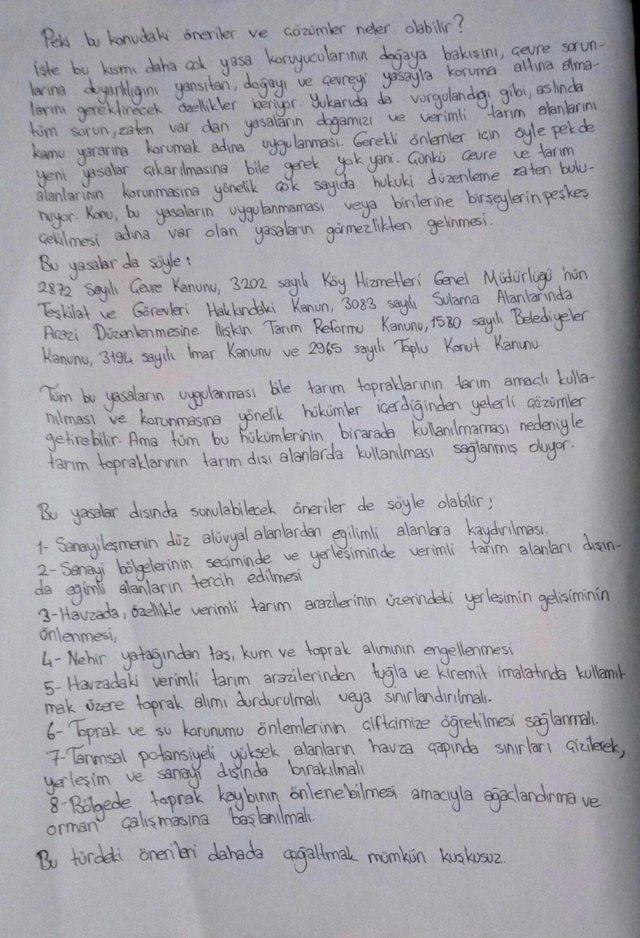 Peki bu konudaki öneriler ve çözümler neler olabilir?
İşte bu kısmı daha çok yasa koruyucularının doğaya bakışını, çevre sorun-
larına duyarlılığını yansıtan, doğayı ve çevreyi yasayla koruma altına alma-
larını gerektirecek özellikler içeriyor. Yukarıda da vurgulandığı gibi, aslında
tüm sorun, zaten var olan yasaların doğamızı ve verimli tarım alanlarını
kamu yararına korumak adına uygulanması. Gerekli önlemler için öyle pek de
yeni yasalar çıkarılmasına bile gerek yok yani. Çünkü çevre ve tarım
alanlarının korunmasına yönelik çok sayıda hukuki düzenleme zaten bulu-
nuyor. Konu, bu yasaların uygulanmaması veya birilerine birşeylerin peşkeş
çekilmesi adına var olan yasaların görmezlikten gelinmesi.
Bu yasalar da şöyle:
2872 Sayılı Çevre Kanunu, 3202 sayılı Köy Hizmetleri Genel Müdürlüğü'nün
Teşkilat ve Görevleri Hakkındaki Kanun, 3083 sayılı Sulama Alanlarında
Arazi Düzenlenmesine İlişkin Tarım Reformu Kanunu, 1580 sayılı Belediyeler
Kanunu, 3194 sayılı İmar Kanunu ve 2965 sayılı Toplu Konut Kanunu
Tüm bu yasaların uygulanması bile tarım topraklarının tarım amaçlı kulla-
nılması ve korunmasına yönelik hükümler içerdiğinden yeterli çözümler
getirebilir. Ama tüm bu hükümlerinin birarada kullanılmaması nedeniyle
tarım topraklarının tarım dışı alanlarda kullanılması sağlanmış oluyor.
Bu yasalar dışında sunulabilecek öneriler de şöyle olabilir;
1- Sanayileşmenin düz alüvyal alanlardan eğilimli alanlara kaydırılması.
2- Sanayi bölgelerinin seçiminde ve yerleşiminde verimli tarım alanları dışın-
da eğimli alanların tercih edilmesi
3- Havzada, özellikle verimli tarım arazilerinin üzerindeki yerleşimin gelişiminin
önlenmesi,
4- Nehir yatağından taş, kum ve toprak alımının engellenmesi
5- Havzadaki verimli tarım arazilerinden tuğla ve kiremit imalatında kullanıl-
mak üzere toprak alımı durdurulmalı veya sınırlandırılmalı.
6- Toprak ve su korunumu önlemlerinin çiftçimize öğretilmesi sağlanmalı.
7- Tarımsal potansiyeli yüksek alanların havza çapında sınırları çizilerek,
yerleşim ve sanayi dışında bırakılmalı
8- Bölgede toprak kaybının önlenebilmesi amacıyla ağaçlandırma ve
orman çalışmasına başlanılmalı.
Bu türdeki önerileri dahada çoğaltmak mümkün kuşkusuz.